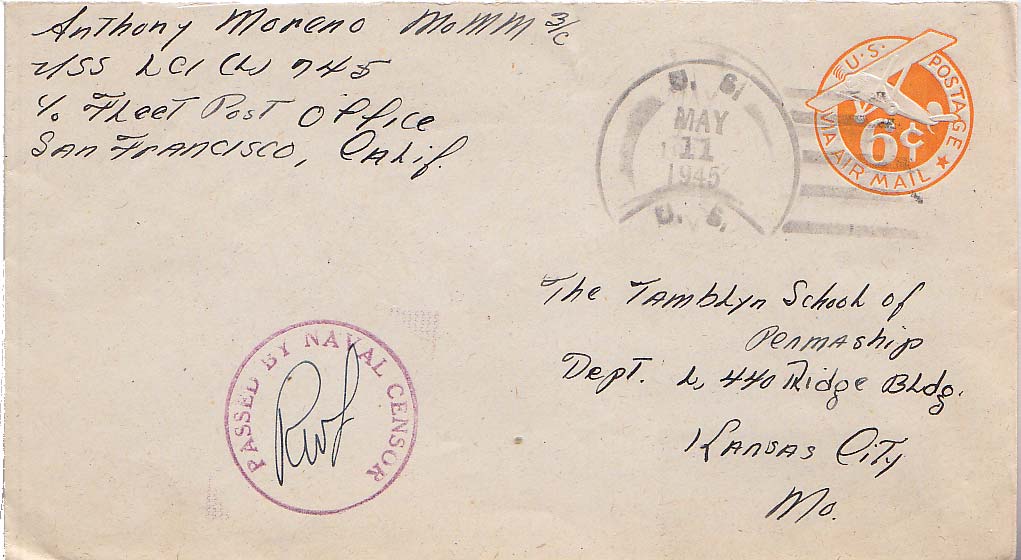 Anthony Moreno MoMM 3/c
USS LCI (L) 745
c/o Fleet Post Office
San Francisco, Calif.
U. S.
MAY
11
1945
U. S.
U.S. POSTAGE
6¢
VIA AIR MAIL
The Tamblyn School of
Penmaship
Dept. L, 440 Ridge Bldg.
Kansas City
Mo.
PASSED BY NAVAL CENSOR